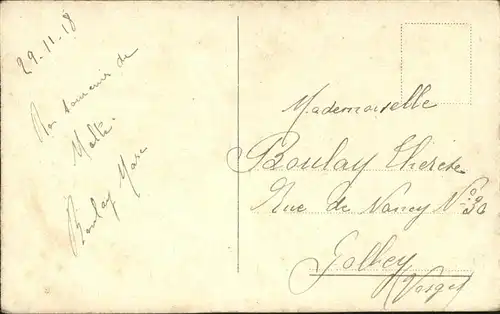 29-11-18
Bon souvenir de
Malte.
Boulay Marc
Mademoiselle
Boulay Therese
Rue de Nancy No 30
Golbey
(Vosges)